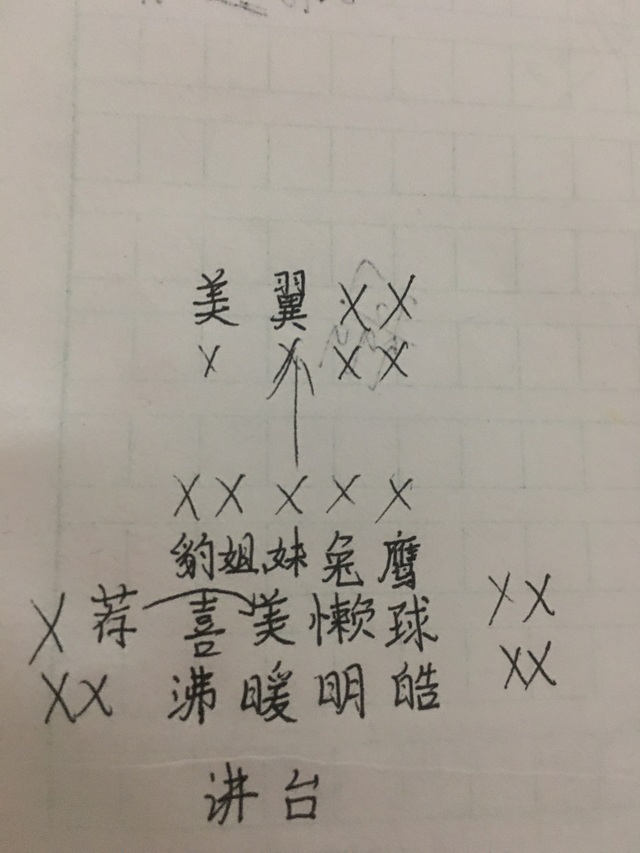 美 翼 X X
X X X X
X X X X X
豹 姐 妹 兔 鹰
X 荐 喜 美 懒 球 X X
X X 沸 暖 明 皓 X X
讲台